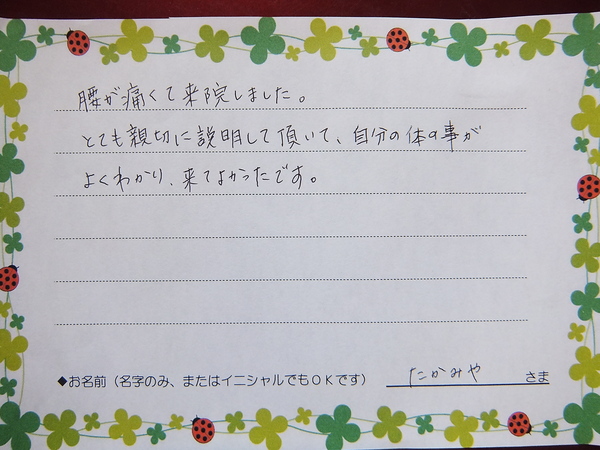 腰が痛くて来院しました。
とても親切に説明して頂いて、自分の体の事が
よくわかり、来てよかったです。
◆お名前（名字のみ、またはイニシャルでもOKです） たかみや さま